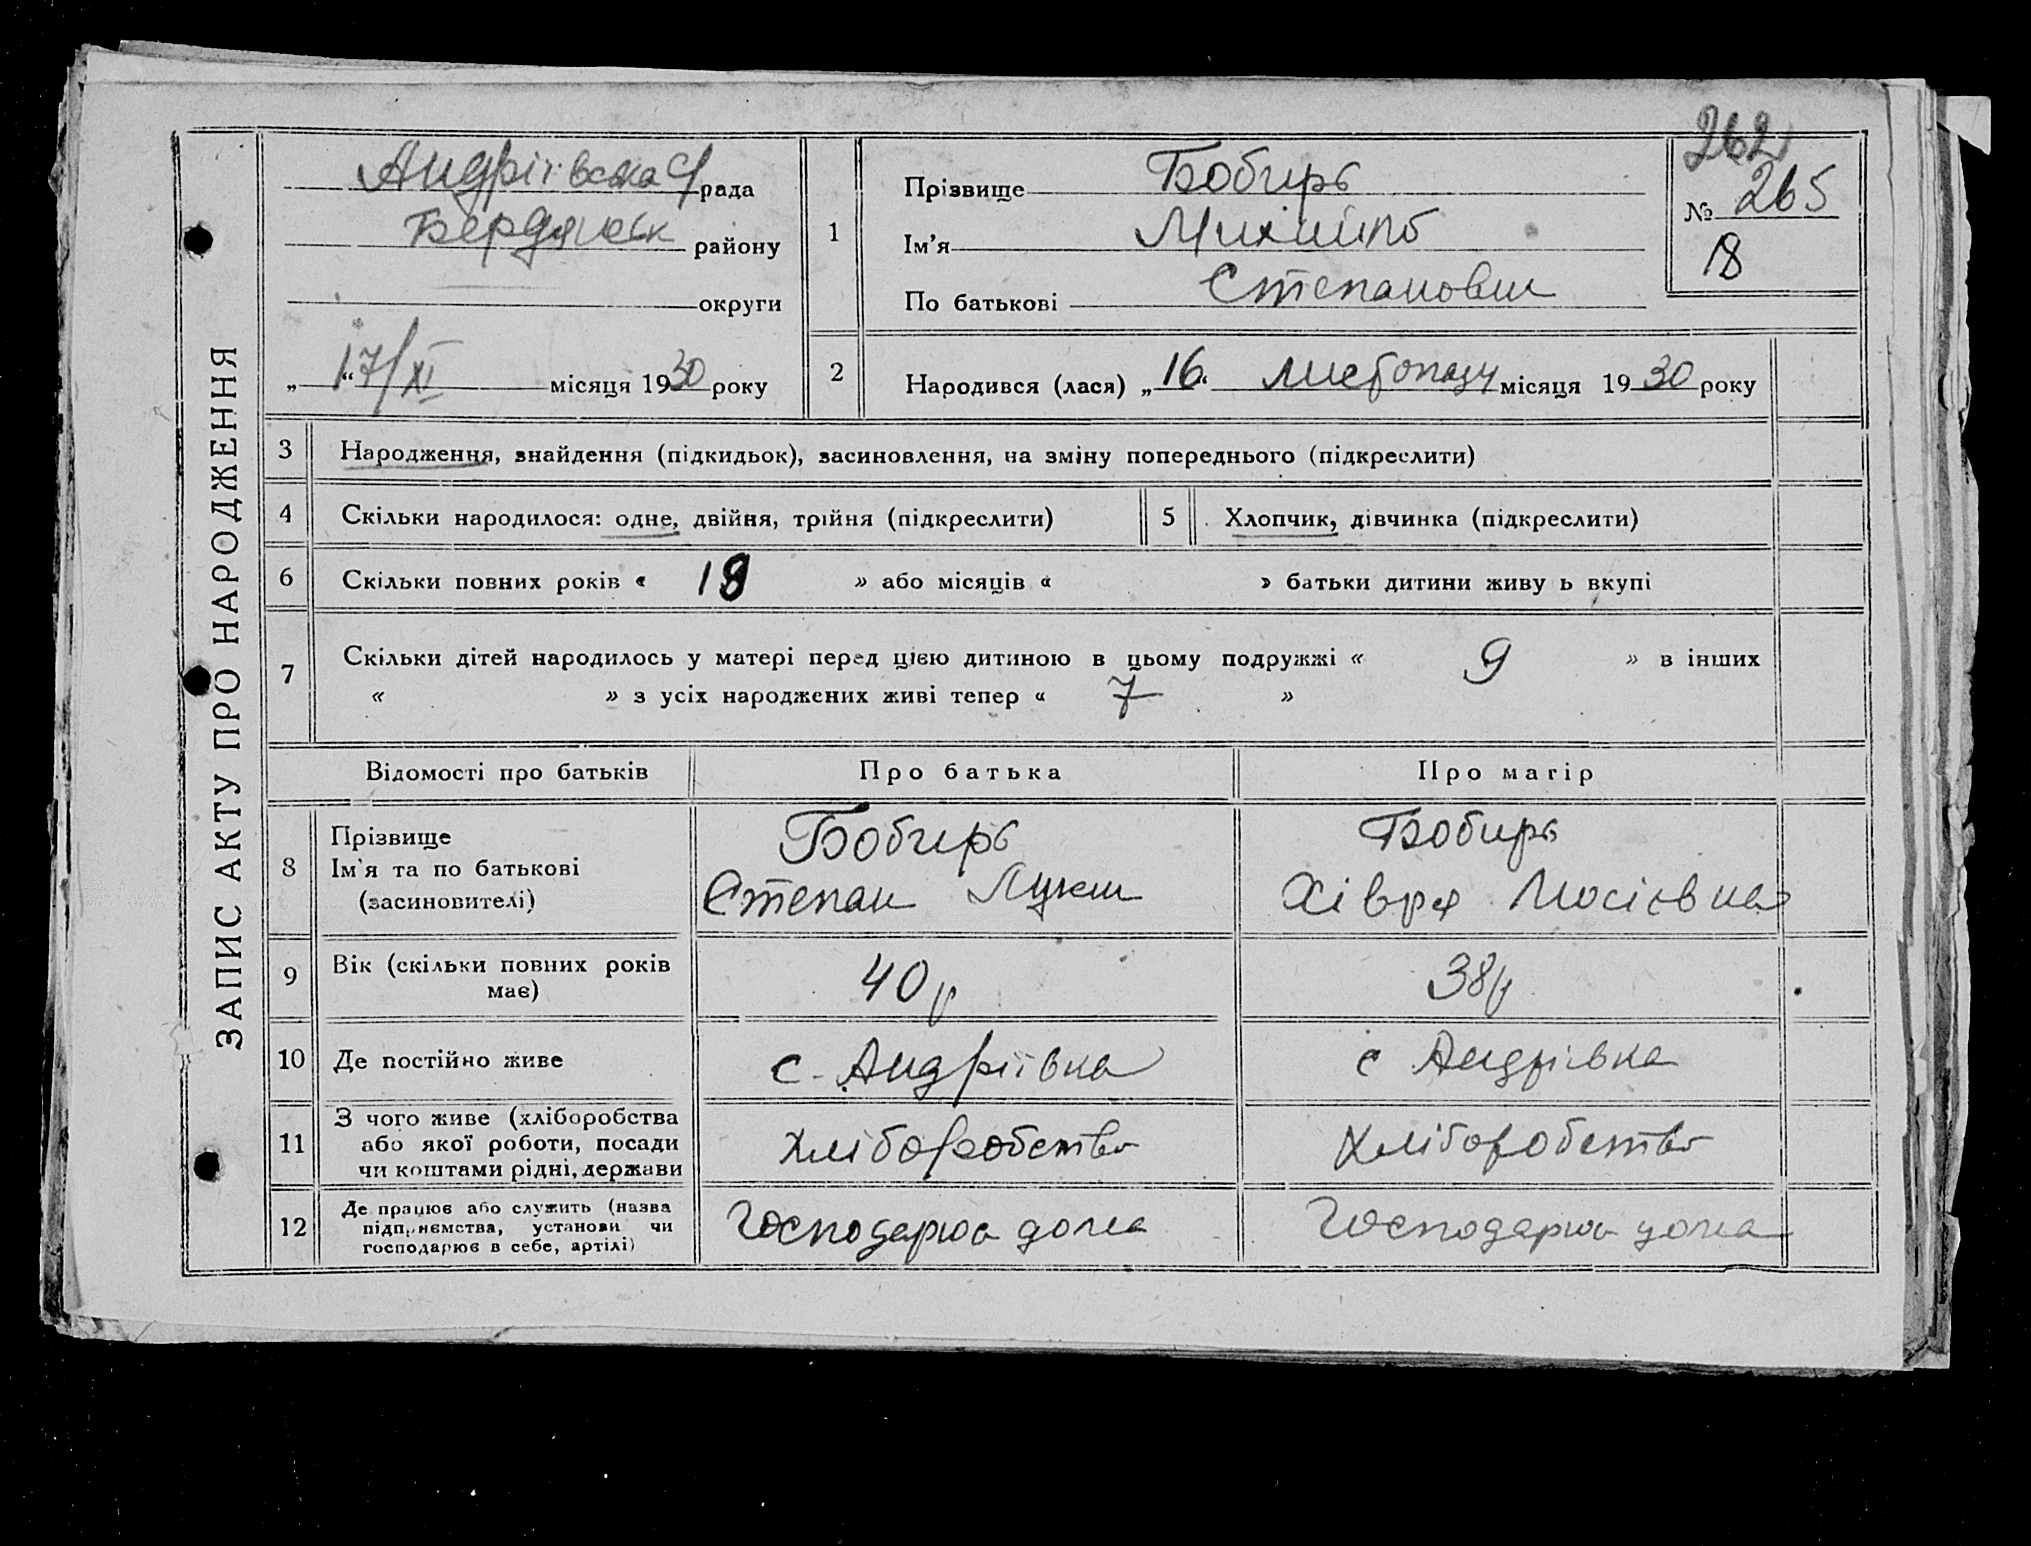 ЗАПИС АКТУ ПРО НАРОДЖЕННЯ
Андріївська с/рада
Бердянськ району
округи
„17/XI“ місяця 1930 року
1
Прізвище Бобирь
Ім'я
По батькові Степанович
262
№ 265
18
2
Народився (лася) „16“ листопаду місяця 1930 року
3
Народження, знайдення (підкидьок), засиновлення, на зміну попереднього (підкреслити)
4
Скільки народилося: одне, двійня, трійня (підкреслити)
5
Хлопчик, дівчинка (підкреслити)
6
Скільки повних років « 18 » або місяців « » батьки дитини живу ь вкупі
7
Скільки дітей народилось у матері перед цією дитиною в цьому подружжі « 9 » в інших
« » з усіх народжених живі тепер « 7 »
Відомості про батьків
Про батька
Про матір
8
Прізвище
Ім'я та по батькові
(засиновителі)
Бобирь
Степан Лукич
Бобирь
Хівря Мосієвна
9
Вік (скільки повних років
має)
40 р
38 р
10
Де постійно живе
с. Андріївка
с Андрівка
11
З чого живе (хліборобства
або якої роботи, посади
чи коштами рідні, держави
хліборобство
хліборобство
12
Де працює або служить (назва
підприємства, установи чи
господарює в себе, артілі)
Господарює дома
Господарює дома